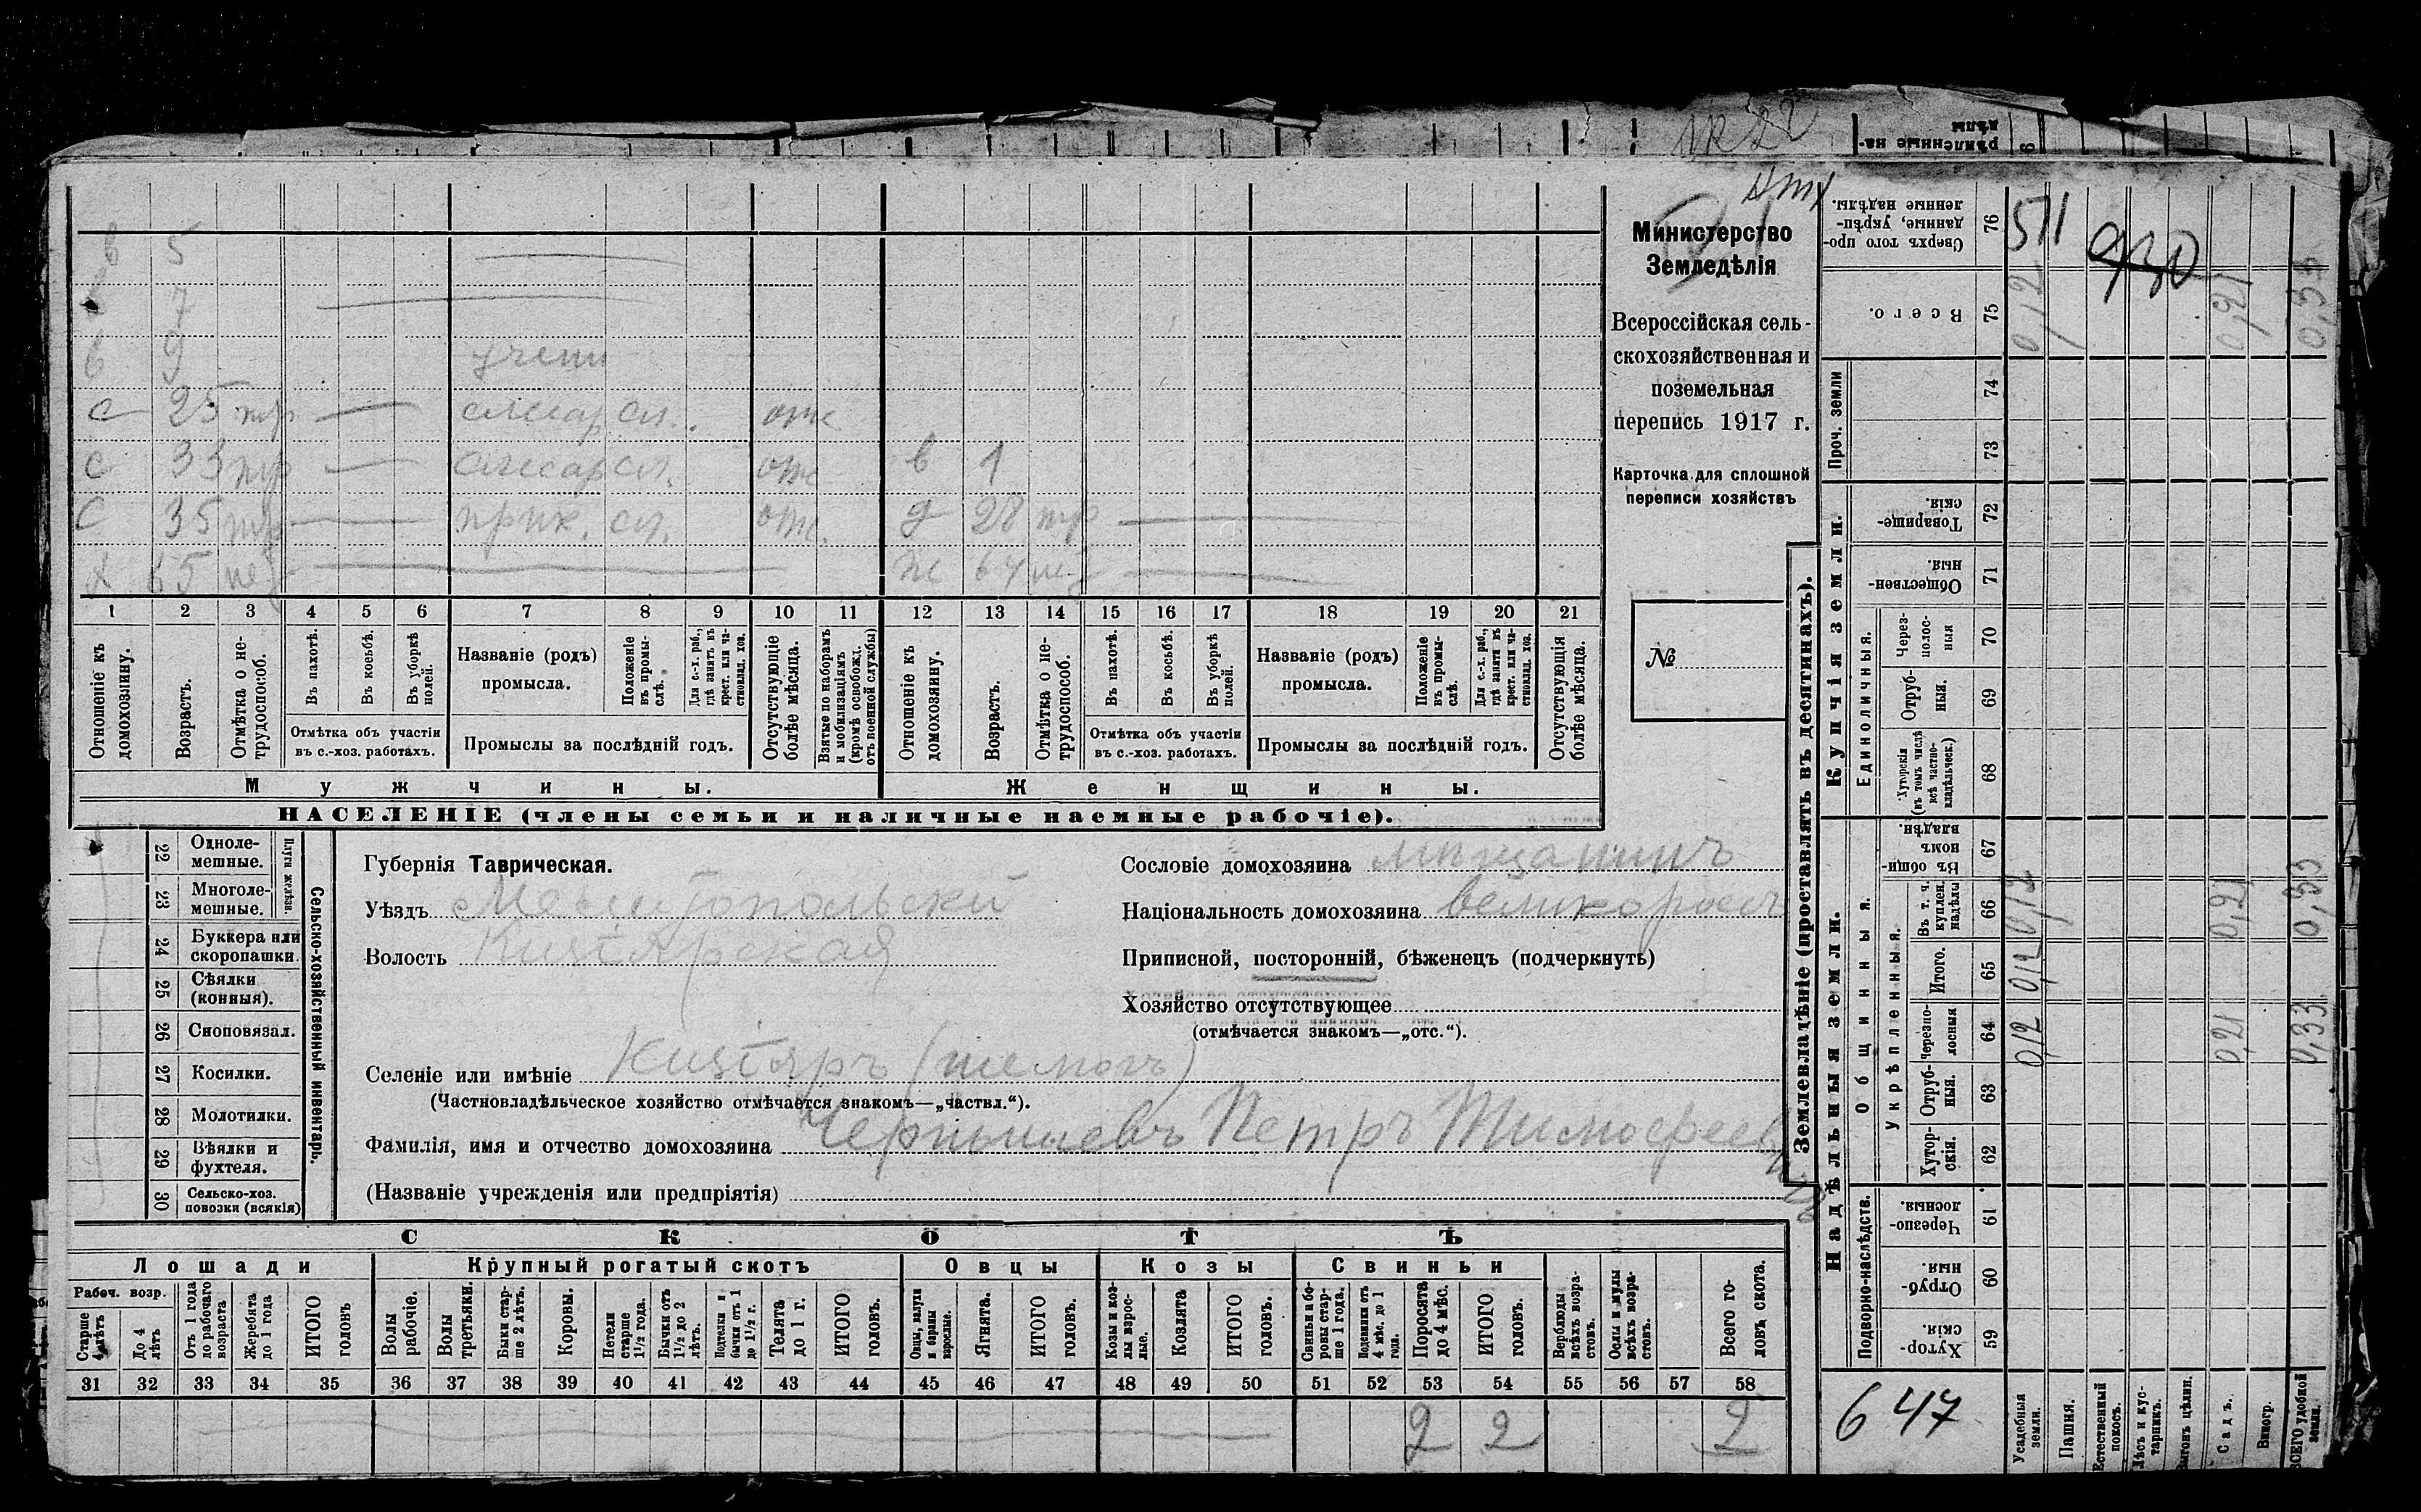 № 22
Министерство
Земледѣлія
Всероссійская сель-
скохозяйственная и
поземельная
перепись 1917 г.
Карточка для сплошной
переписи хозяйствъ
№
в 5
7
в 9 учени
с 25 слесар отс
с 33 слесар отс в 1
с 35 прик. отс. д 28
х 65 ж 64
1 2 3 4 5 6 7 8 9 10 11 12 13 14 15 16 17 18 19 20 21
Отношеніе къ домохозяину.
Возрастъ.
Отмѣтка о не-трудоспособ.
Въ пахотѣ.
Въ косьбѣ.
Въ уборкѣ полей.
Отмѣтка объ участіи въ с.-хоз. работахъ.
Названіе (родъ) промысла.
Положеніе въ промы-слѣ.
Для с.-х. раб., гдѣ занятъ въ крест. или ча-стновлад. хоз.
Промыслы за послѣдній годъ.
Отсутствующіе болѣе мѣсяца.
Взятые по наборамъ и мобилизаціямъ (кромѣ освобожд. отъ военной службы)
Отношеніе къ домохозяину.
Возрастъ.
Отмѣтка о не-трудоспособ.
Въ пахотѣ.
Въ косьбѣ.
Въ уборкѣ полей.
Отмѣтка объ участіи въ с.-хоз. работахъ.
Названіе (родъ) промысла.
Положеніе въ промы-слѣ.
Для с.-х. раб., гдѣ занята въ крест. или ча-стновлад. хоз.
Промыслы за послѣдній годъ.
Отсутствующія болѣе мѣсяца.
Мужчины.
Женщины.
НАСЕЛЕНІЕ (члены семьи и наличные наемные рабочіе).
22 Одноле-мешные.
23 Многоле-мешные.
Плуги желѣзн.
24 Буккера или скоропашки.
25 Сѣялки (конныя).
26 Сноповязал.
27 Косилки.
28 Молотилки.
29 Вѣялки и фухтеля.
30 Сельско-хоз. повозки (всякія)
Сельско-хозяйственный инвентарь.
Губернія Таврическая.
Уѣздъ Мелитопольскій
Волость Кизіярская
Селеніе или имѣніе Кизіяръ
(Частновладѣльческое хозяйство отмѣчается знакомъ—„частвл.“).
Фамилія, имя и отчество домохозяина Чернышевъ Петръ Тимофеевичъ
(Названіе учрежденія или предпріятія)
Сословіе домохозяина мѣщанинъ
Національность домохозяина великороссъ
Приписной, посторонній, бѣженецъ (подчеркнуть)
Хозяйство отсутствующее
(отмѣчается знакомъ—„отс.“).
СКОТЪ
Лошади
Крупный рогатый скотъ
Овцы
Козы
Свиньи
Рабоч. возр.
Старше 4 лѣтъ
До 4 лѣтъ
Отъ 1 года до рабочаго возраста
Жеребята до 1 года
ИТОГО головъ
Волы рабочіе.
Волы третьяки.
Быки стар-ше 2 лѣтъ.
Коровы.
Нетели старше 1½ года.
Бычки отъ 1½ до 2 лѣтъ.
Подтелки и бычки отъ 1 до 1½ г.
Телята до 1 г.
ИТОГО головъ.
Овцы, валухи и бараны взрослые.
Ягнята.
ИТОГО головъ.
Козы и коз-лы взрос-лые.
Козлята
ИТОГО головъ.
Свиньи и бо-ровы стар-ше 1 года.
Подсвинки отъ 4 мѣс. до 1 года.
Поросята до 4 мѣс.
ИТОГО головъ.
Верблюды всѣхъ возра-стовъ.
Ослы и мулы всѣхъ возра-стовъ.
Всего го-ловъ скота.
31 32 33 34 35 36 37 38 39 40 41 42 43 44 45 46 47 48 49 50 51 52 53 54 55 56 57 58
2 2 2
Землевладѣніе (проставлять въ десятинахъ).
Надѣльныя земли.
Купчія земли.
Проч. земли
Подворно-наслѣдств.
Общинныя.
Укрѣпленныя.
Единоличныя.
Сверхъ того про-данные, укрѣп-ленные надѣлы. 76 511 930
Всего. 75 0,12 0,21 0,33
74
73
Товарище-скія. 72
Обществен-ныя. 71
Через-полос-ныя 70
Отруб-ныя. 69
Хуторскія (въ томъ числѣ всѣ частно-владѣльческ.) 68
Въ общи-номъ владѣн. 67
Въ т. ч. куплен. надѣлы 66 0,12 0,21 0,33
Итого. 65 0,12
Черезпо-лосныя 64 0,12 0,21 0,33
Отруб-ныя. 63
Хутор-скія. 62
Черезпо-лосныя 61
Отруб-ныя. 60
Хутор-скія. 59
647
Усадебныя земли.
Пашня.
Естественный покосъ.
Лѣсъ и кус-тарникъ.
Выгонъ цѣлин.
Садъ.
Виногр.
ВСЕГО удобной земли.